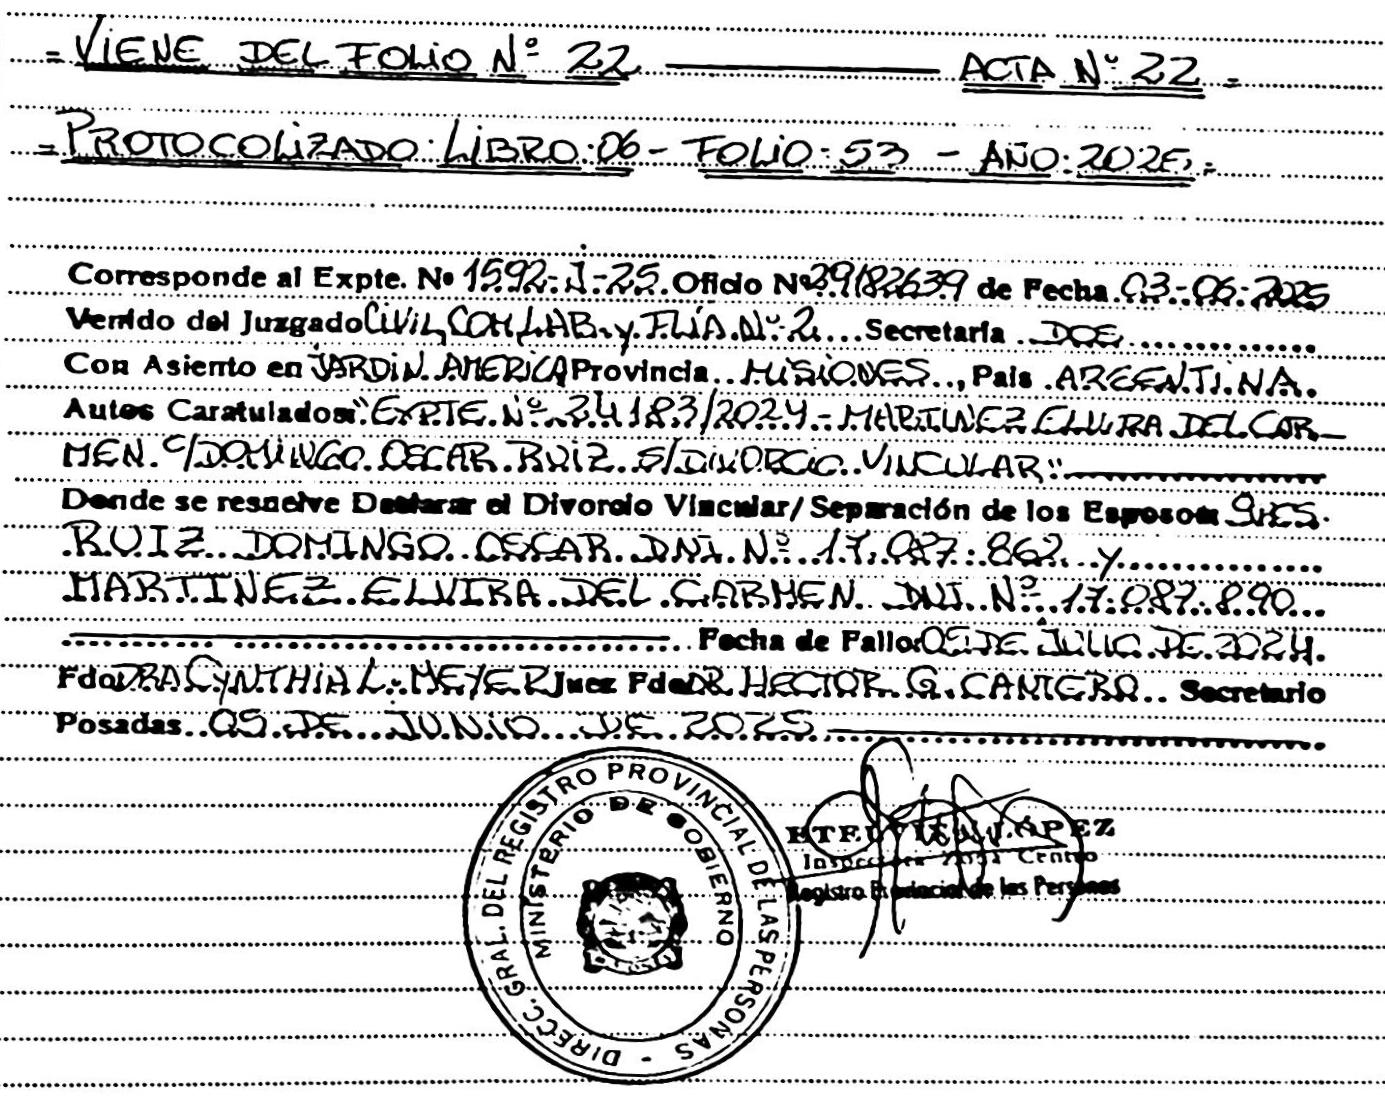 = VIENE DEL FOLIO Nº 22 ——— ACTA Nº 22 =
= PROTOCOLIZADO: LIBRO: 06 - FOLIO: 53 - AÑO: 2025 =
Corresponde al Expte. Nº 1592-J-25. Oficio Nº 29182639 de Fecha 03-06-2025
Venido del Juzgado CIVIL, COM, LAB. y FLÍA. Nº 2 Secretaría DOE
Con Asiento en JARDIN AMERICA Provincia MISIONES, País ARGENTINA.
Autos Caratulados: "EXPTE. Nº 24183/2024 - MARTINEZ ELVIRA DEL CAR-
MEN C/DOMINGO OSCAR RUIZ S/DIVORCIO VINCULAR"
Donde se resuelve Declarar el Divorcio Vincular/Separación de los Esposos: Sres.
RUIZ DOMINGO OSCAR DNI. Nº 17.087.862 y
MARTINEZ ELVIRA DEL CARMEN DNI. Nº 17.087.890
Fecha de Fallo: 05 DE JULIO DE 2024.
Fdo: DRA CYNTHIA L. MEYER Juez Fdo: DR. HECTOR G. CANTERO Secretario
Posadas 05 DE JUNIO DE 2025
DIRECC. GRAL. DEL REGISTRO PROVINCIAL DE LAS PERSONAS -
MINISTERIO DE GOBIERNO
LÓPEZ
Inspectora Zona Centro
Registro Provincial de las Personas